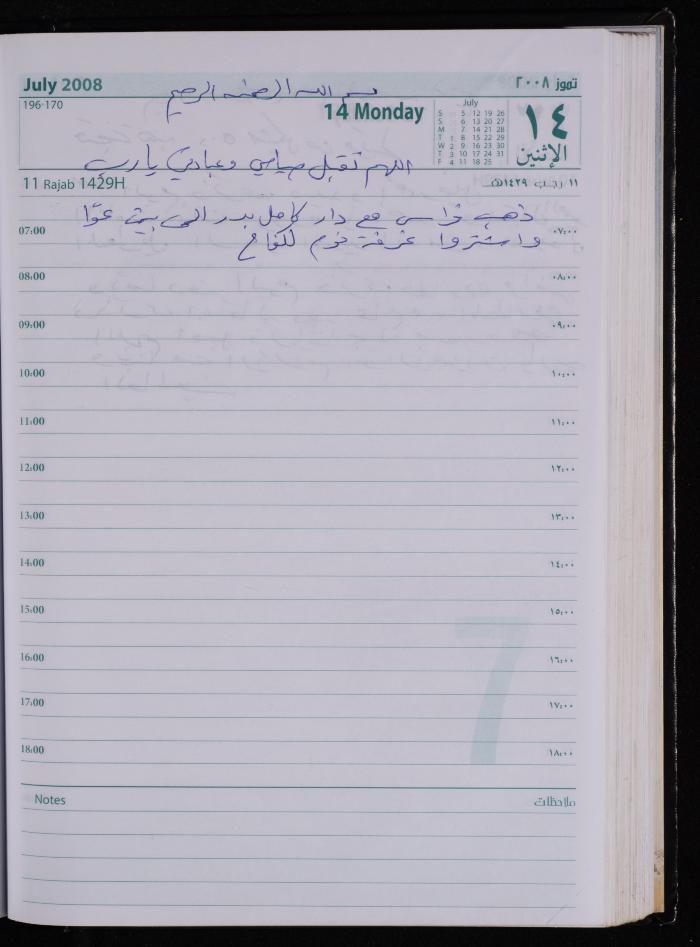 July 2008
تموز ٢٠٠٨
بسم الله الرحمن الرحيم
196-170
14 Monday
July
S 5 12 19 26
S 6 13 20 27
M 7 14 21 28
T 1 8 15 22 29
W 2 9 16 23 30
T 3 10 17 24 31
F 4 11 18 25
١٤
الإثنين
اللهم تقبل صيامي وعبادتي يا رب
11 Rajab 1429H
١١ رجب ١٤٢٩هـ
ذهب فراس مع دار كامل بدر الى بيت عوّا
07:00
٠٧:٠٠
واشتروا غرفة نوم
08:00
٠٨:٠٠
09:00
٠٩:٠٠
10:00
١٠:٠٠
11:00
١١:٠٠
12:00
١٢:٠٠
13:00
١٣:٠٠
14:00
١٤:٠٠
15:00
١٥:٠٠
16:00
١٦:٠٠
17:00
١٧:٠٠
18:00
١٨:٠٠
7
Notes
ملاحظات